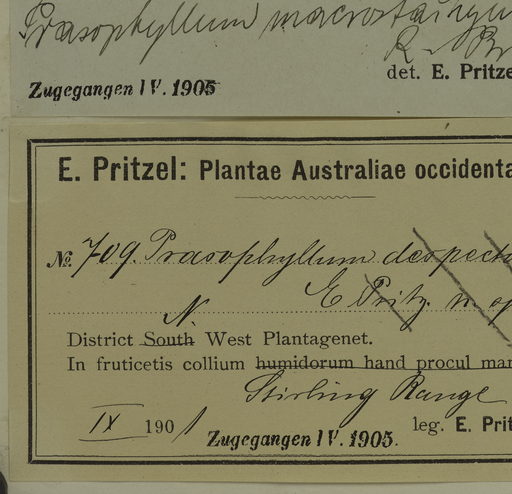 Prasophyllum macrostachyum
R. Br.
det. E. Pritze
Zugegangen IV. 1905
E. Pritzel: Plantae Australiae occidenta
№. 709. Prasophyllum despect
E. Pritz. n. sp
N.
District South West Plantagenet.
In fruticetis collium humidorum hand procul mar
Stirling Range
IX 1901
leg. E. Prit
Zugegangen IV. 1905.